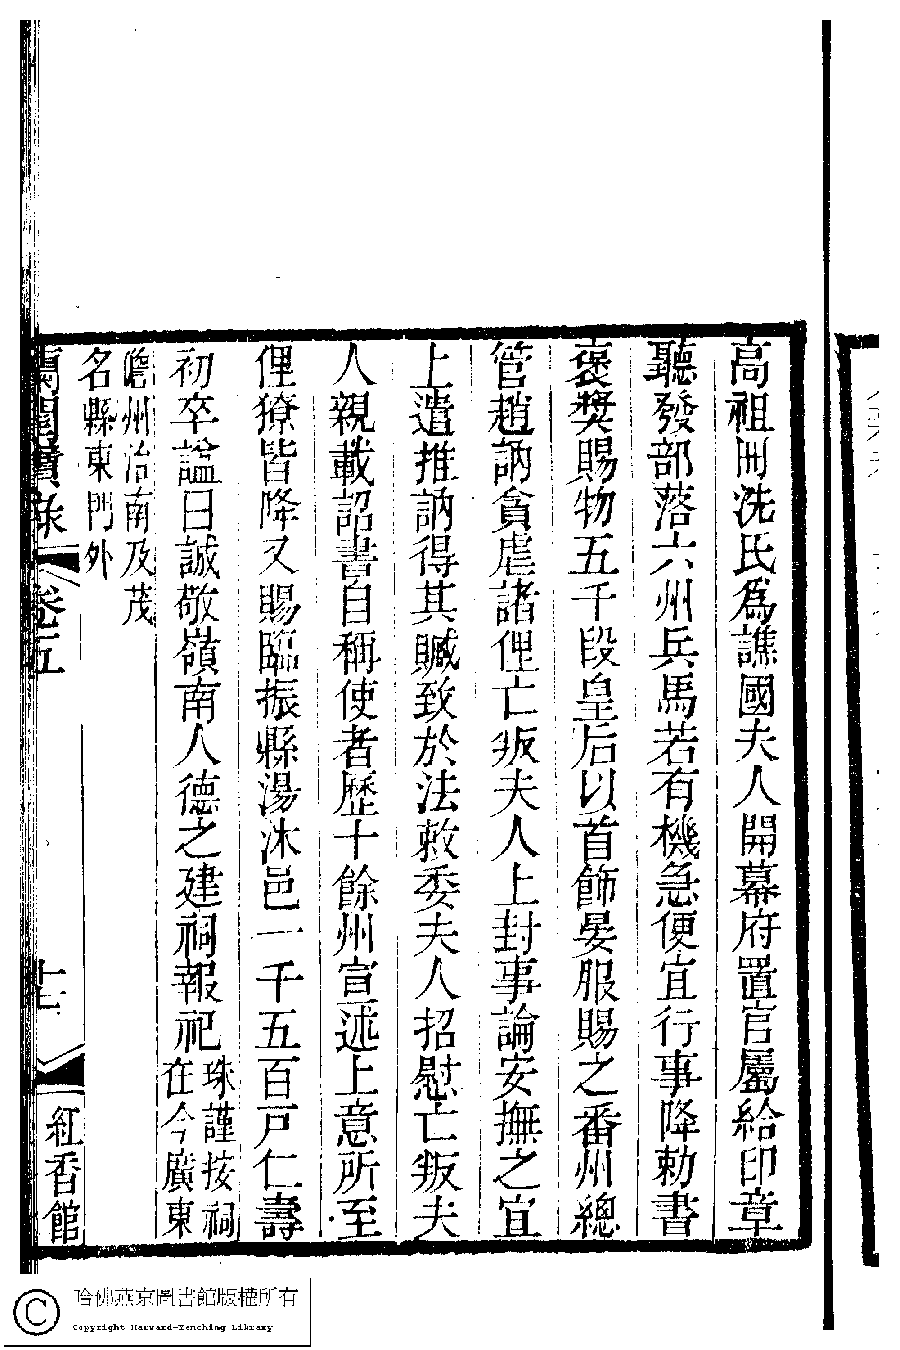 高祖冊洗氏爲譙國夫人開幕府置官屬給印章
聽發部落六州兵馬若有機急便宜行事降勅書
褒奬賜物五千段皇后以首飾宴服賜之番州總
管趙訥貪虐諸俚亡叛夫人上封事論安撫之宜
上遣推訥得其贓致於法敕委夫人招慰亡叛夫
人親載詔書自稱使者歷十餘州宣述上意所至
俚獠皆降又賜臨振縣湯沐邑一千五百戸仁壽
初卒諡曰誠敬嶺南人德之建祠報祀珠謹按祠
在今廣東
儋州治南及茂
名縣東門外
蘭閨寶錄
卷五
十二
紅香館
哈佛燕京圖書館版權所有
Copyright Harvard-Yenching Library